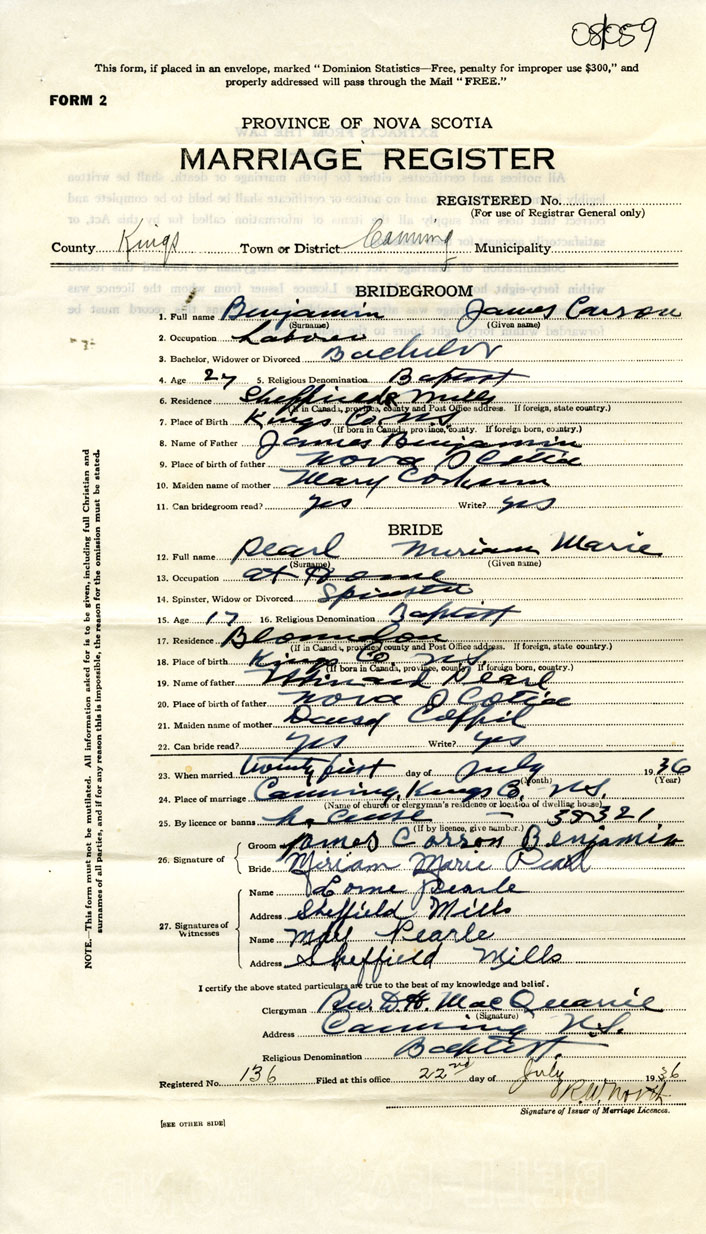 08059
This form, if placed in an envelope, marked "Dominion Statistics—Free, penalty for improper use $300," and
properly addressed will pass through the Mail "FREE."
FORM 2
PROVINCE OF NOVA SCOTIA
MARRIAGE REGISTER
REGISTERED No.
(For use of Registrar General only)
County Kings Town or District Canning Municipality
BRIDEGROOM
1. Full name Benjamin James Carson
(Surname) (Given name)
2. Occupation Laborer
3. Bachelor, Widower or Divorced Bachelor
4. Age 27 5. Religious Denomination Baptist
6. Residence Sheffields Mills
(If in Canada, province, county and Post Office address. If foreign, state country.)
7. Place of Birth Kings Co. N.S.
(If born in Canada, province, county. If foreign born, country.)
8. Name of Father James Benjamin
9. Place of birth of father Nova Scotia
10. Maiden name of mother Mary
11. Can bridegroom read? yes Write? yes
BRIDE
12. Full name Pearl Miriam Marie
(Surname) (Given name)
13. Occupation at Home
14. Spinster, Widow or Divorced Spinster
15. Age 17 16. Religious Denomination Baptist
17. Residence Blomidon
(If in Canada, province, county and Post Office address. If foreign, state country.)
18. Place of birth Kings Co. N.S.
(If born in Canada, province, county. If foreign born, country.)
19. Name of father Pearl
20. Place of birth of father Nova Scotia
21. Maiden name of mother
22. Can bride read? yes Write? yes
23. When married twenty first day of July 1936
(Month) (Year)
24. Place of marriage Canning, Kings Co. N.S.
(Name of church or clergyman's residence or location of dwelling house)
25. By licence or banns License – 38321
(If by licence, give number.)
26. Signature of
Groom James Carson Benjamin
Bride Miriam Marie Pearl
27. Signatures of Witnesses
Name Lorne Pearle
Address Sheffield Mills
Name Pearle
Address Sheffield Mills
I certify the above stated particulars are true to the best of my knowledge and belief.
Clergyman Rev. D.H. MacQuarrie
(Signature)
Address Canning N.S.
Religious Denomination Baptist
Registered No. 136 Filed at this office 22nd day of July 1936
R.W. North
Signature of Issuer of Marriage Licences.
[SEE OTHER SIDE]
NOTE.—This form must not be mutilated. All information asked for is to be given, including full Christian and
surnames of all parties, and if for any reason this is impossible, the reason for the omission must be stated.